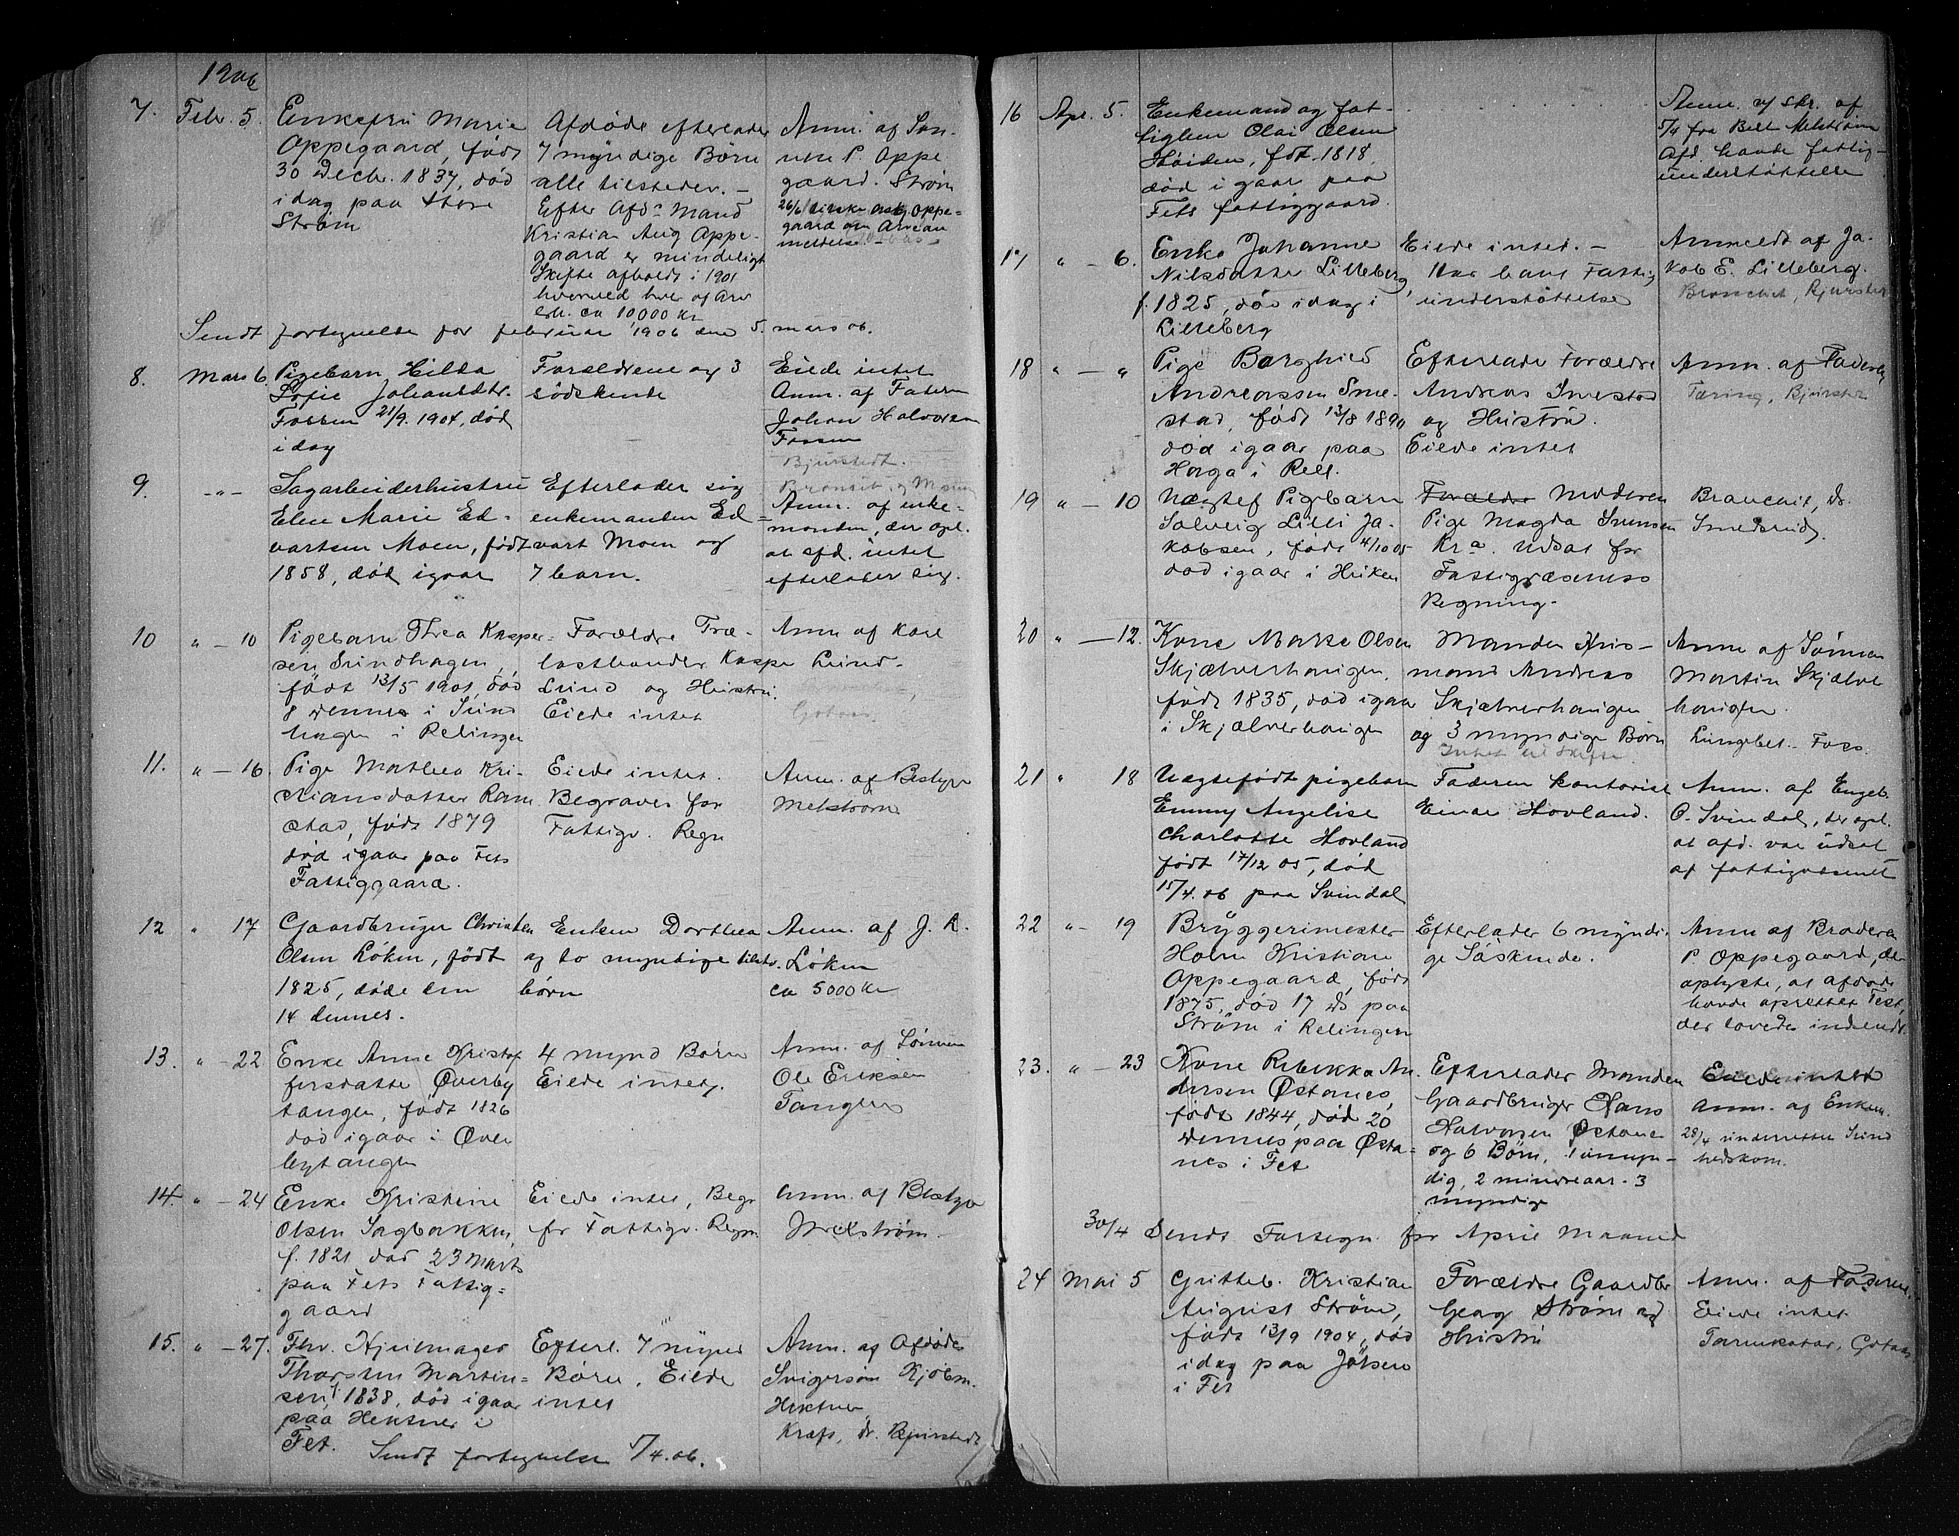 1906
7. Febr. 5. Enkefru Marie
Oppegaard, født
30 Decbr. 1837, død
idag paa Store
Strøm
Afdøde efterlader
7 myndige Børn
alle tilstede. –
Efter Afds Mand
Kristian Aug Oppe-
gaard er mindeligt
Skifte afholdt i 1901
hvorved hver af Arv
erh. ca 10000 Kr
Anm. af Søn-
nen P. Oppe
gaard. Strøm
26/6 Oppe-
gaard om Arvean
meldelse –
Sendt fortegnelse for februar 1906 den 5. mars 06.
8. Mars 6. Pigebarn Hilda
Sofie Johansdtr.
Fossen 21/9. 1904, død
idag
Forældrene og 3
sødskende
Eiede intet
Anm. af Faderen
Johan Halvorsen
Fossum
Bjurstedt.
9. –"– Sagarbeiderhustru
Elen Marie Ed-
vartsen Moen, født
1858, død igaar
Efterlader sig
enkemanden Ed-
vart Moen og
7 barn.
Anm. af enke-
manden, der opl.
at afd. intet
efterlader sig.
10 " – 10 Pigebarn Thea Kasper-
sen Lundhagen,
født 13/5 1901, død
8 dennes i Lund
hagen i Relingen
Forældre Træ-
lasthandler Kaspe
Lund og Hustru
Eiede intet
Anm af Karl
Lund-
Gotaas.
11. " – 16. Pige Mathea Kri-
stiansdatter Ram
stad, født 1879
død igaar paa Fets
Fattiggaard.
Eiede intet.
Begraves for
Fattigv. Regn
Anm. af Bestyr
Melstrøm
12 " 17 Gaardbruger Christen
Olsen Løken, født
1825, døde den
14 dennes.
Enken Dorthea
og to myndige tilst.
børn
Anm. af J. K.
Løken
ca 5000 Kr
13. " – 22 Enke Anne Kristof
fersdatte Øverby
tangen, født 1826
død igaar i Øver
bytangen
4 mynd Børn
Eiede intet.
Anm. af Sønnen
Ole Eriksen
Tangen
14. " – 24 Enke Kristine
Olsen Sagbakken,
f. 1821 død 23 Marts
paa Fets Fattig-
gaard
Eiede intet, Begr
for Fattigv. Regn
Anm. af Bestyr
Melstrøm.
15. " – 27. Fhv. Hjulmager
Thorsten Martin-
sen, f 1838, død igaar
paa Hektner i
Fet.
Efterl. 7 mynd
Børn. Eiede
intet
Anm. af Afdøde
Svigersøn Kjølm.
Hektner
Kræft, Dr. Bjurstedt
Sendt fortegnelse 5/4. 06.
16 Apr. 5. Enkemand og fat-
tiglem Olai Olsen
Høiden, født 1818,
død igaar paa
Fets fattiggaard.
Anm. v/ skr. af
5/4 fra Best Melstrøm
Afd. havde fattig-
understøttelse
17 " – 6. Enke Johanne
Nilsdatter Lilleberg,
f. 1825, død idag i
Lilleberg
Eiede intet. –
Har havt Fattig
understøttelse
Anmeldt af Ja-
kob E. Lilleberg.
Bronchit, Bjurstedt
18 " – " Pige Borghild
Andreassen Sme-
stad, født 13/8 1890
død igaar paa
Horga i Rell.
Efterlade Forældre
Andreas Smestad
og Hustru.
Eiede intet
Anm. af Faderen
Tæring, Bjurstedt
19 " – 10 Uægtef Pigebarn
Solveig Lilli Ja-
kobsen, født 4/10 05
død igaar i Huken
Forældre Moderen
Pige Magda Svensen
Kra. Udsat for
Fattigvæsenets
Regning.
Bronchit, Dr.
Smedsrud.
20 " – 12. Kone Marte Olsen
Skjælverhaugen,
født 1835, død igaar
i Skjælverhaugen
Manden Hus-
mand Andreas
Skjælverhaugen
og 3 myndige Børn
Intet til Skifte
Anm af Sønnen
Martin Skjælver
haugen.
Lungebet. Foss.
21 " 18 Uægtefødt pigebarn
Emmy Angelise
Charlotte Hovland
født 17/12 05, død
15/4. 06 paa Svindal
Faderen kontorist
Einar Hovland.
Anm. af Engeb.
O. Svindal, der opl.
at afd. var udsat
af fattigvæsenet
22 "– 19 Bryggerimester
Holm Kristian
Oppegaard, født
1875, død 17 ds paa
Strøm i Relingen
Efterlader 6 myndi-
ge Søskende.
Anm af Broderen
P Oppegaard, der
oplyste, at afdøde
havde oprettet Test,
der lovedes indsendt
23. " – 23 Kone Rebekka An
dersen Østanes,
født 1844, død 20
dennes paa Østa-
nes i Fet
Efterlader Manden
Gaardbruger Hans
Halvorsen Østanes
og 6 Børn, 1 umyn-
dig, 2 mindreaar. 3
myndige
Eiede intet
Anm. af Enkem.
28/4 underrettet Sund
hedskom.
30/4 Sendt Fortegn. for April Maaned
24 Mai 5 Gutteb. Kristian
August Strøm,
født 13/9 1904, død
idag paa Jølsen
i Fet
Forældre Gaardbr
Georg Strøm og
Hustru
Anm. af Faderen,
Eiede intet
Tarmkatar, Gotaas